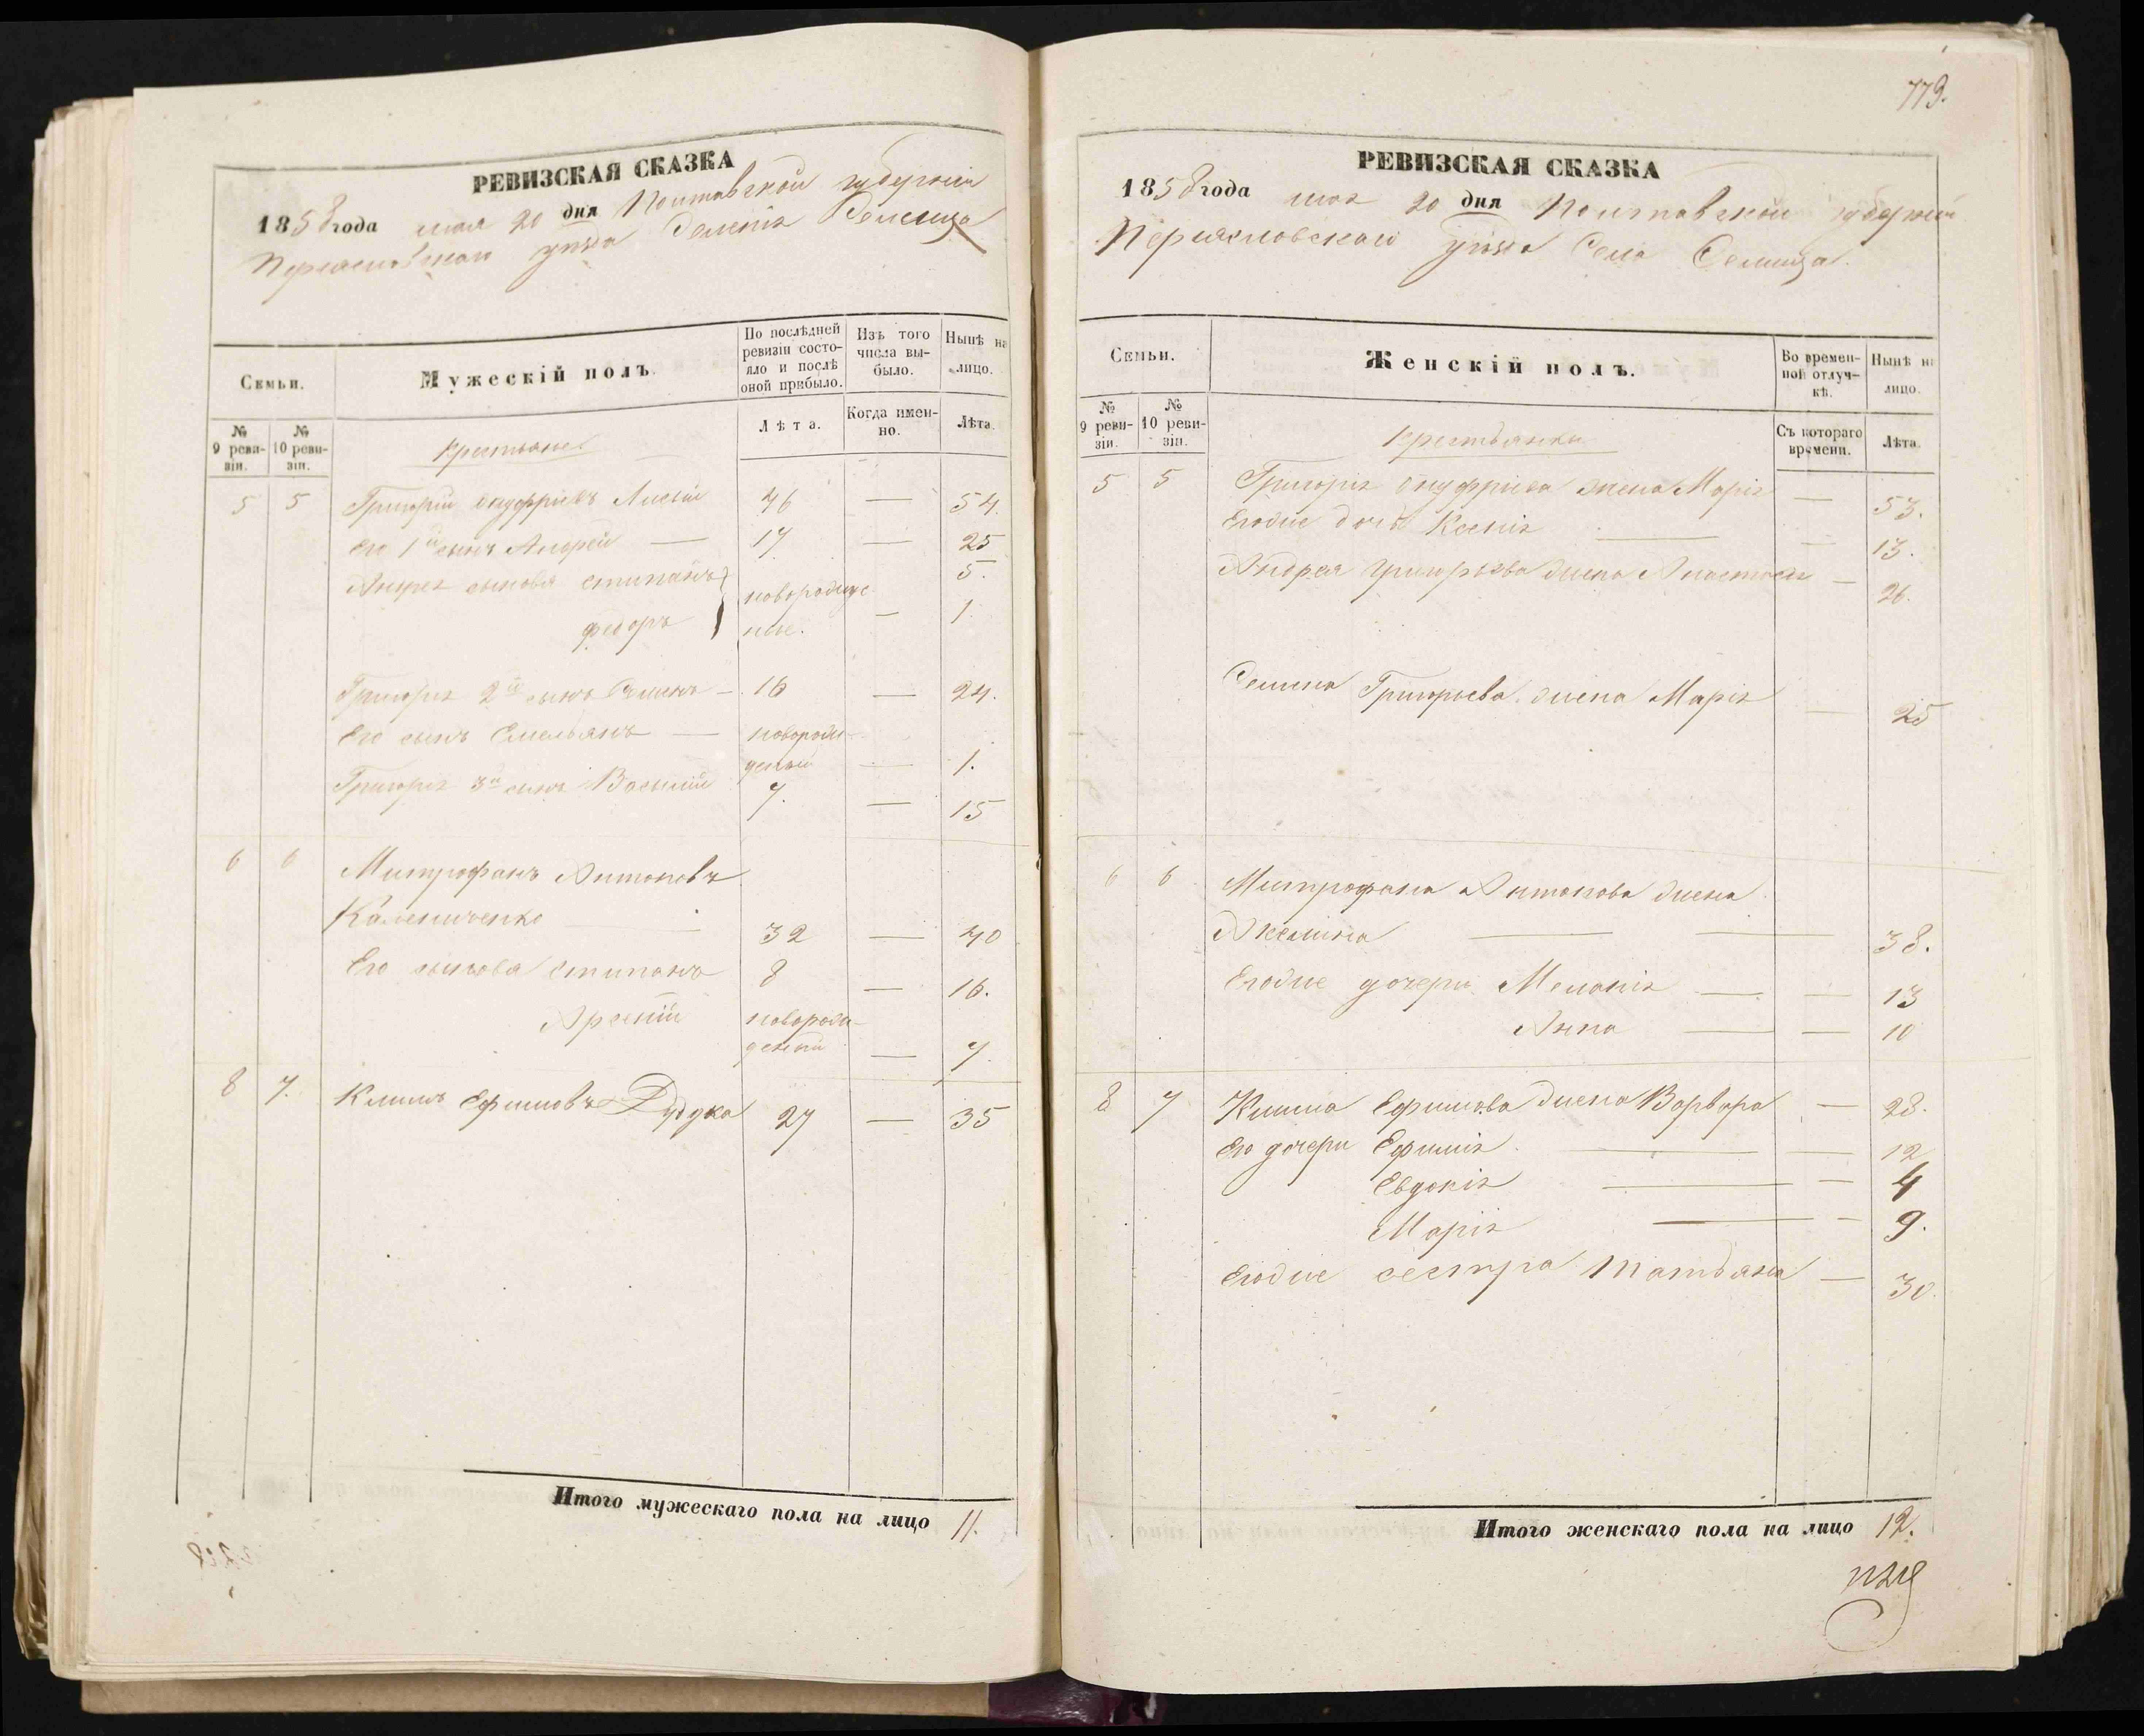 РЕВИЗСКАЯ СКАЗКА
1858 года мая 20 дня Полтавской губерніи
Переяславскаго уѣзда Селенія Селища
Семьи.
Мужескій полъ.
По послѣдней ревизіи состояло и послѣ оной прибыло.
Изъ того числа выбыло.
Нынѣ на лицо.
№ 9 ревизіи.
№ 10 ревизіи.
Лѣта.
Когда именно.
Лѣта.
крестьяне
5 5 Григорій Онуфріевъ 46 — 54.
Его 1й сынъ Андрей — 17 — 25
Андрея сыновя Стипанъ } новорожде 5.
Федоръ } ные. — 1.
Григорія 2й сынъ Семенъ — 16 — 24.
Его сынъ Емельянъ — новорож-
деный — 1.
Григорія 3й сынъ Василій 7. — 15
6 6 Митрофанъ Антоновъ
Калениченко — 32 — 40
Его сыновя Стипанъ 8 — 16.
Арсеній новорож-
деный — 7.
8 7. Климъ Ефимовъ Дудка 27 — 35
Итого мужескаго пола на лицо 11.
779.
РЕВИЗСКАЯ СКАЗКА
1858 года мая 20 дня Полтавской губерніи
Переяславскаго уѣзда Села Селища.
Семьи.
Женскій полъ.
Во временной отлучкѣ.
Нынѣ на лицо.
№ 9 ревизіи.
№ 10 ревизіи.
Съ котораго времени.
Лѣта.
крестьянки
5 5 Григорія Онуфріева жена Марія — 53.
Егоже дочь Ксенія — — 13.
Андрея Григорьева жена Анастасія — 26.
Семена Григорьева жена Марія — 25
6 6 Митрофана Антонова жена
Акелина — — 38.
Егоже дочери Меланія — — 13
Анна — — 10
8 7 Клима Ефимова жена Варвара — 28.
Его дочери Ефимія — — 12
Евдокія — — 4
Марія — — 9.
Егоже сестра Татьяна — 30.
Итого женскаго пола на лицо 12.